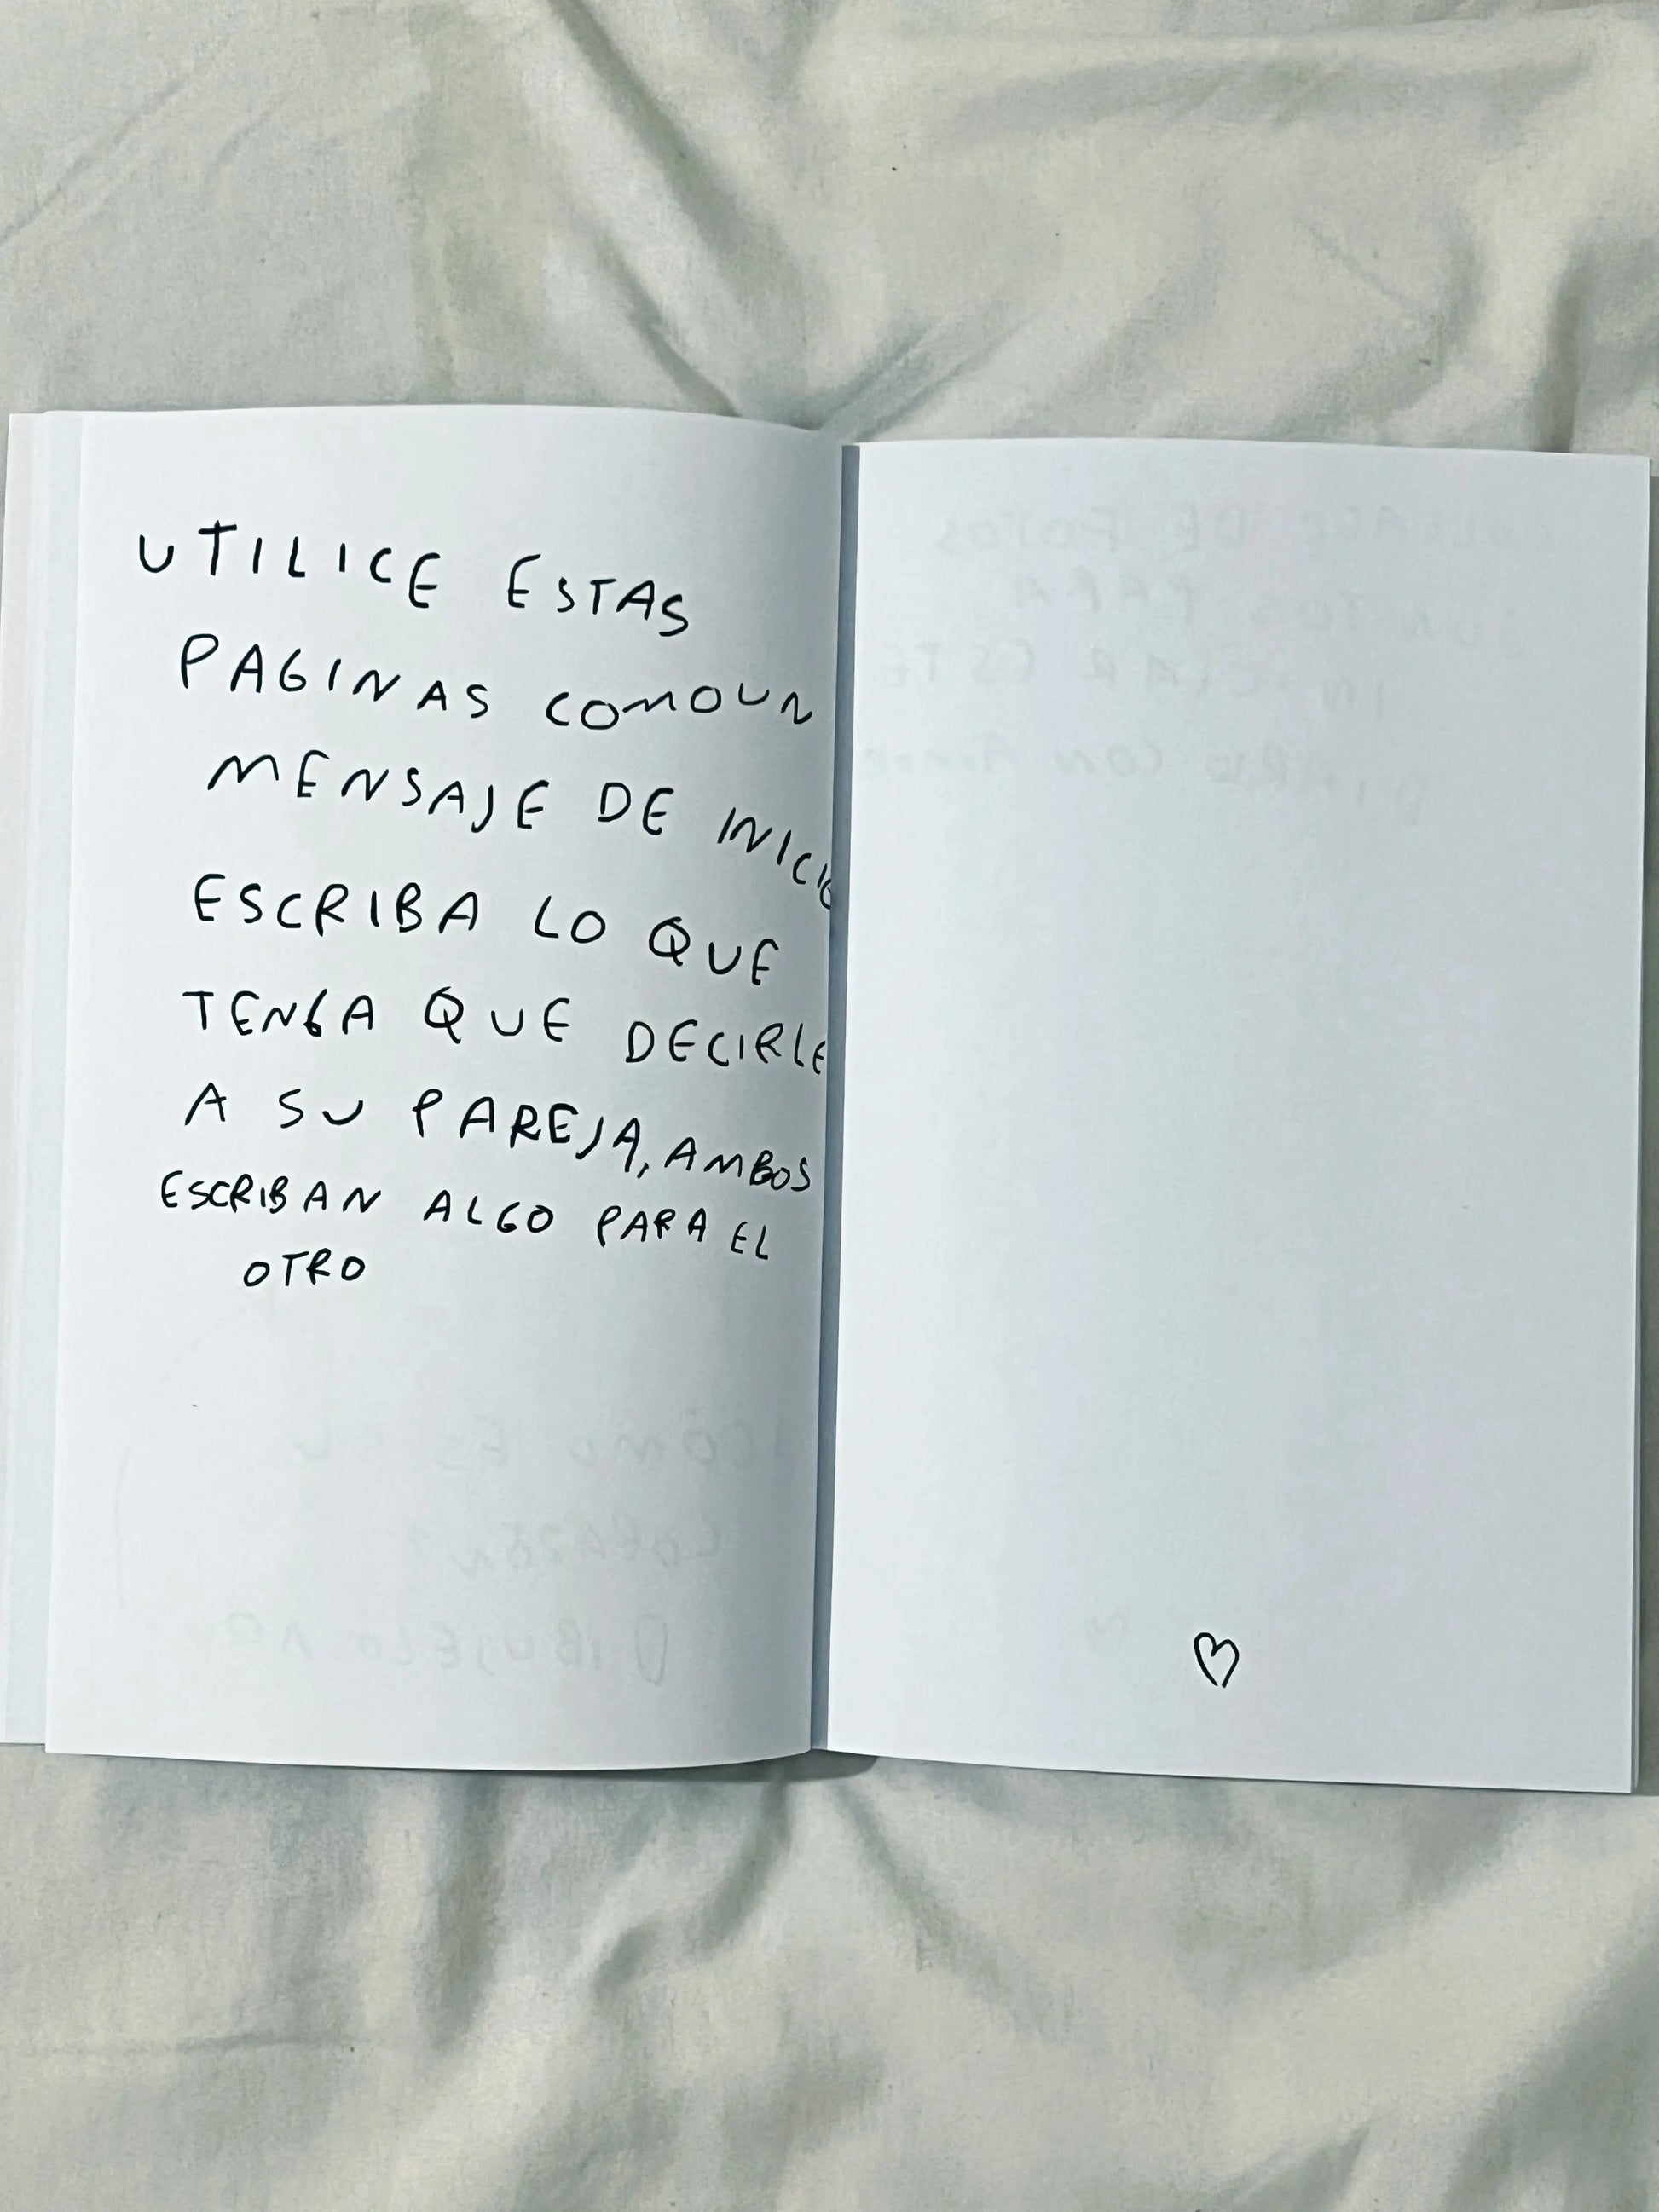 UTILICE ESTAS
PAGINAS COMO UN
MENSAJE DE INICIO
ESCRIBA LO QUE
TENGA QUE DECIRLE
A SU PAREJA, AMBOS
ESCRIBAN ALGO PARA EL
OTRO